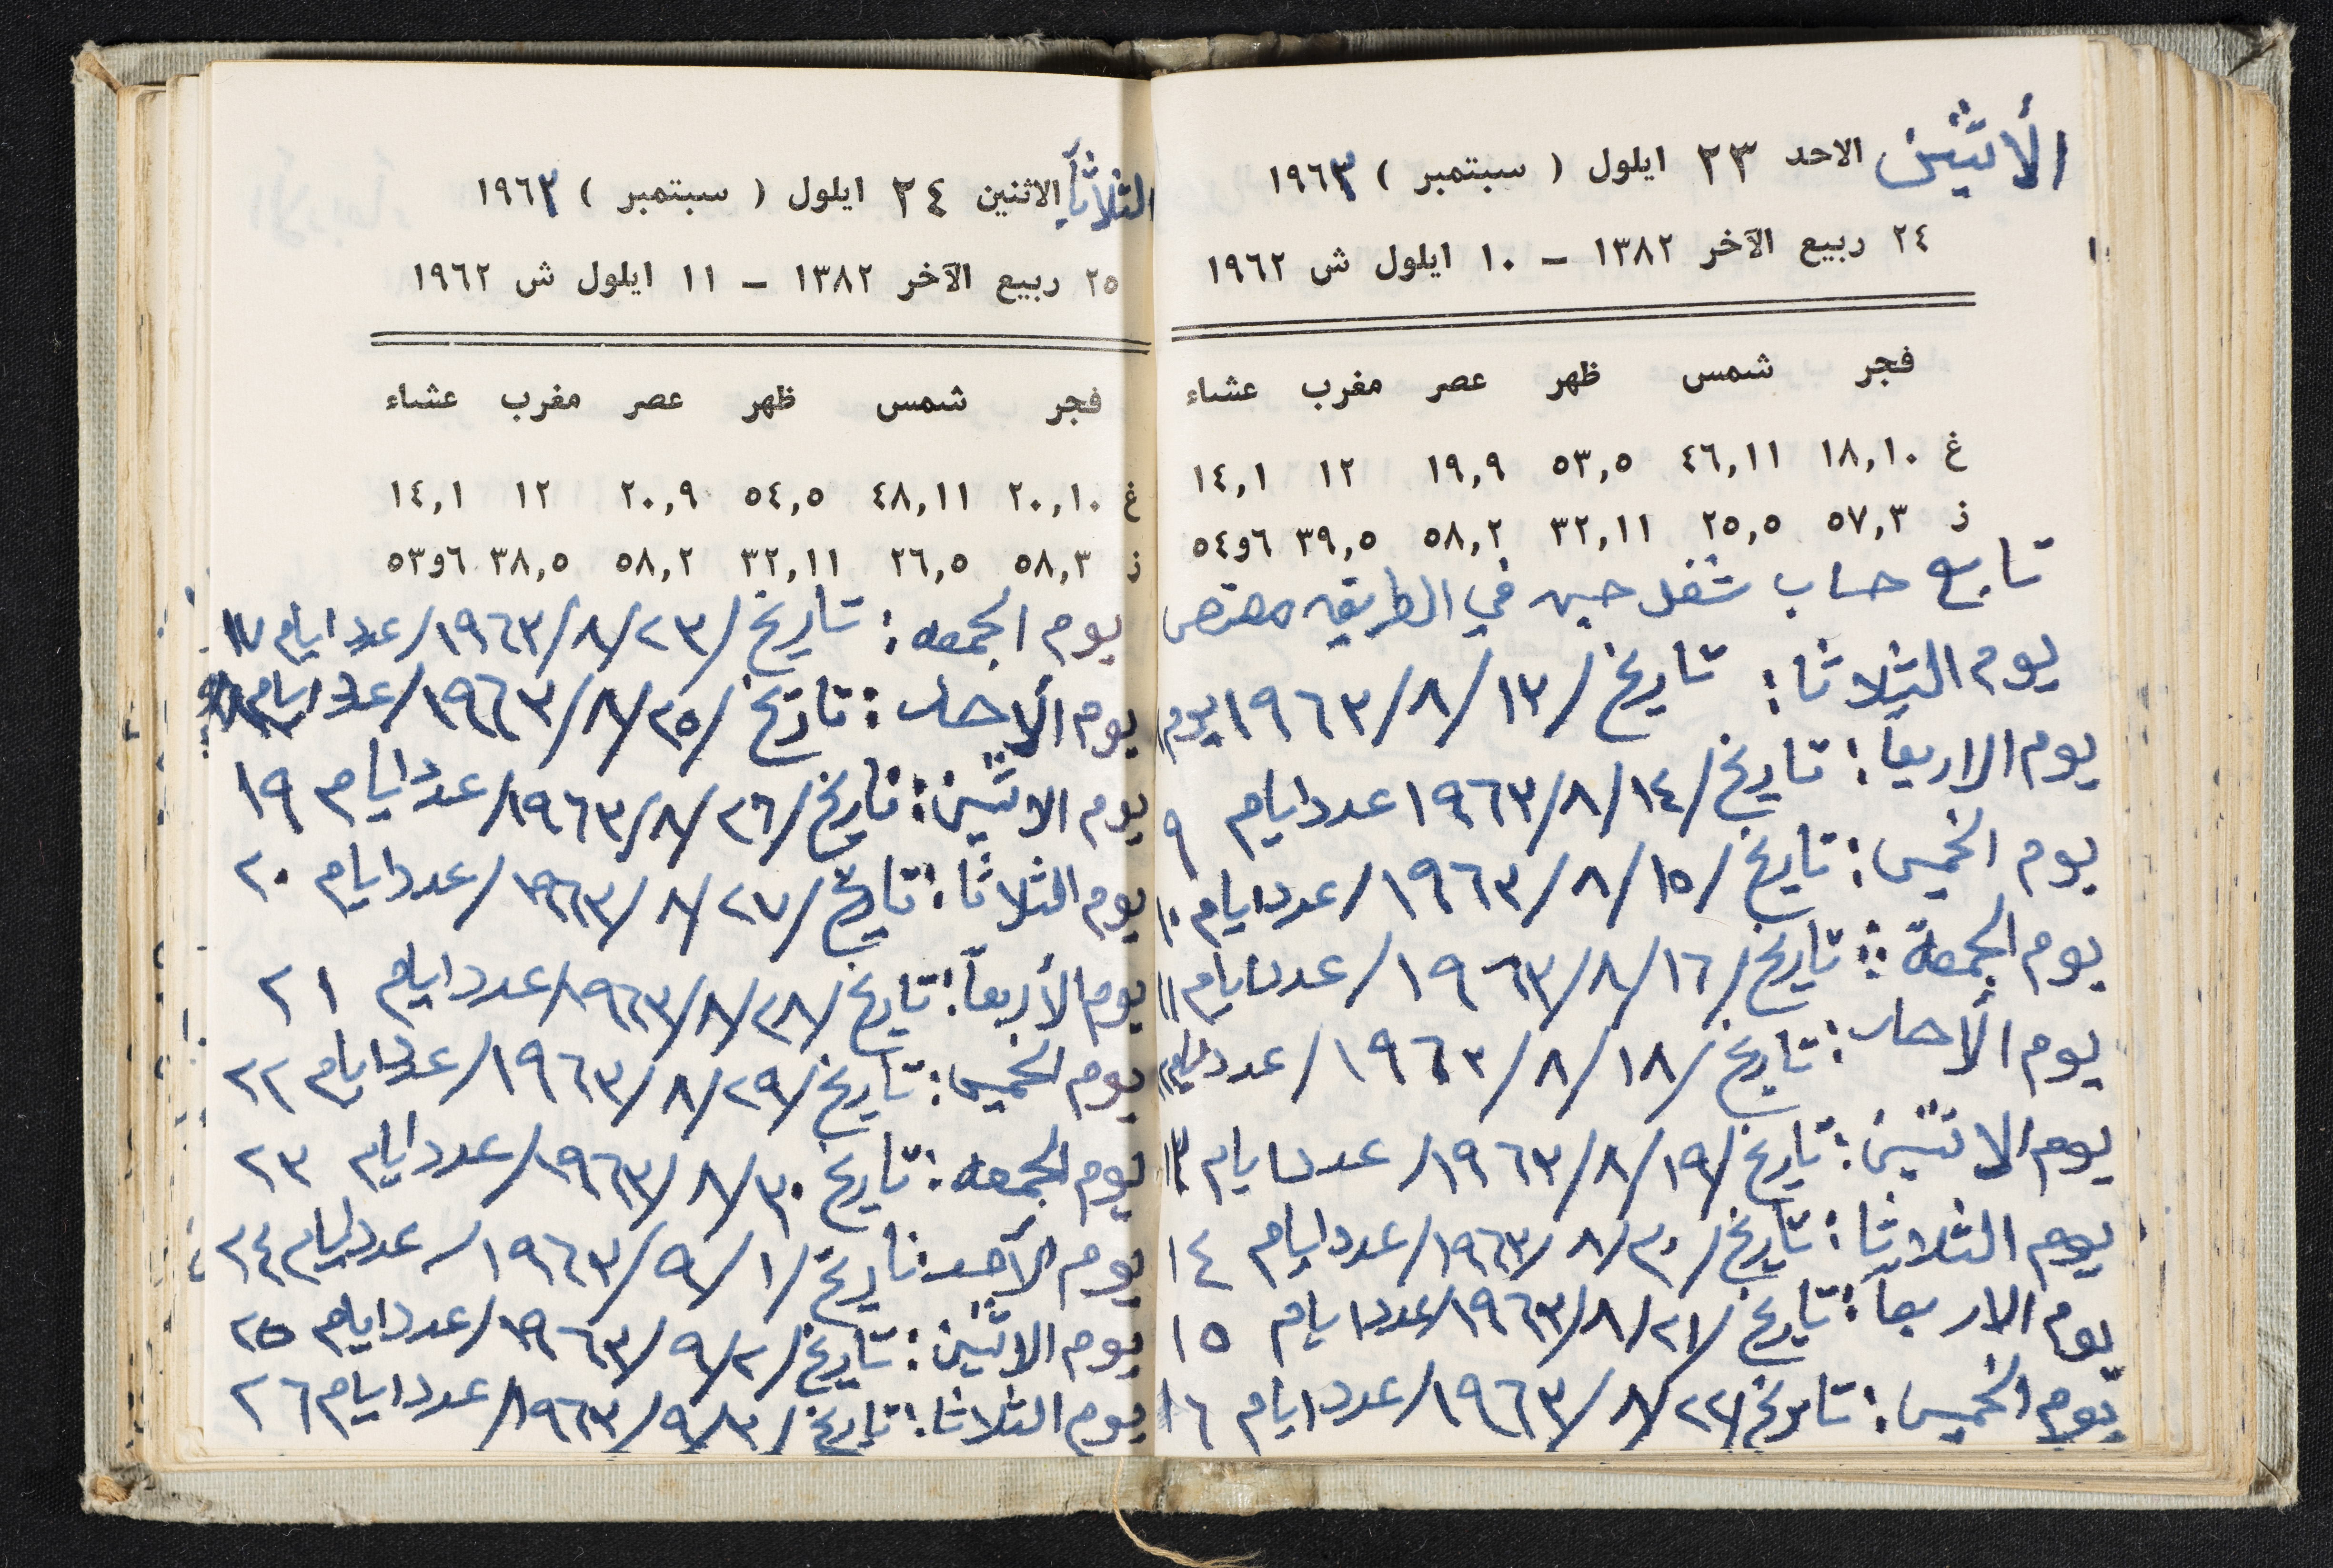 الأثنين الاحد ٢٣ ايلول ( سبتمبر ) ١٩٦٣
٢٤ ربيع الآخر ١٣٨٢ – ١٠ ايلول ش ١٩٦٢
فجر شمس ظهر عصر مغرب عشاء
غ ١٨,١٠ ٤٦,١١ ٥٣,٥ ١٩,٩ ١٢ ١٤,١
ذ ٥٧,٣ ٢٥,٥ ٣٢,١١ ٥٨,٢ ٣٩,٥ ٦و٥٤
تابع حساب شغل حين في الطريق
يوم الثلاثا: تاريخ /١٣/٨/١٩٦٣ يوم
يوم الاربعاً: تاريخ /١٤/٨/١٩٦٣ عدد ايام ٩
يوم الخميس: تاريخ /١٥/٨/١٩٦٣/ عدد ايام ١٠
يوم الجمعة: تاريخ /١٦/٨/١٩٦٣/ عدد ايام ١١
يوم الأحد: تاريخ /١٨/٨/١٩٦٣/ عدد ايام
يوم الاثنين: تاريخ /١٩/٨/١٩٦٣/ عدد ايام ١٣
يوم الثلاثا: تاريخ /٢٠/٨/١٩٦٣/ عدد ايام ١٤
يوم الاربعاً: تاريخ /٢١/٨/١٩٦٣/ عدد ايام ١٥
يوم الخميس: تاريخ /٢٢/٨/١٩٦٣/ عدد ايام ١٦
الثلاثاً الاثنين ٢٤ ايلول ( سبتمبر ) ١٩٦٣
٢٥ ربيع الآخر ١٣٨٢ – ١١ ايلول ش ١٩٦٢
فجر شمس ظهر عصر مغرب عشاء
غ ٢٠,١٠ ٤٨,١١ ٥٤,٥ ٢٠,٩ ١٢ ١٤,١
ذ ٥٨,٣ ٢٦,٥ ٣٢,١١ ٥٨,٢ ٣٨,٥ ٦و٥٣
يوم الجمعه: تاريخ /٢٣/٨/١٩٦٣/ عدد ايام ١٧
يوم الأحد: تاريخ /٢٥/٨/١٩٦٣/ عدد ايام ١٨
يوم الاثنين: تاريخ /٢٦/٨/١٩٦٣/ عدد ايام ١٩
يوم الثلاثا: تاريخ /٢٧/٨/١٩٦٣/ عدد ايام ٢٠
يوم الأربعاً: تاريخ /٢٨/٨/١٩٦٣/ عدد ايام ٢١
يوم الخميس: تاريخ /٢٩/٨/١٩٦٣/ عدد ايام ٢٢
يوم الجمعه: تاريخ ٣٠/٨/١٩٦٣/ عدد ايام ٢٣
يوم الأحد تاريخ /١/٩/١٩٦٣/ عدد ايام ٢٤
يوم الاثنين: تاريخ /٢/٩/١٩٦٣/ عدد ايام ٢٥
يوم الثلاثا: تاريخ /٣/٩/١٩٦٣/ عدد ايام ٢٦